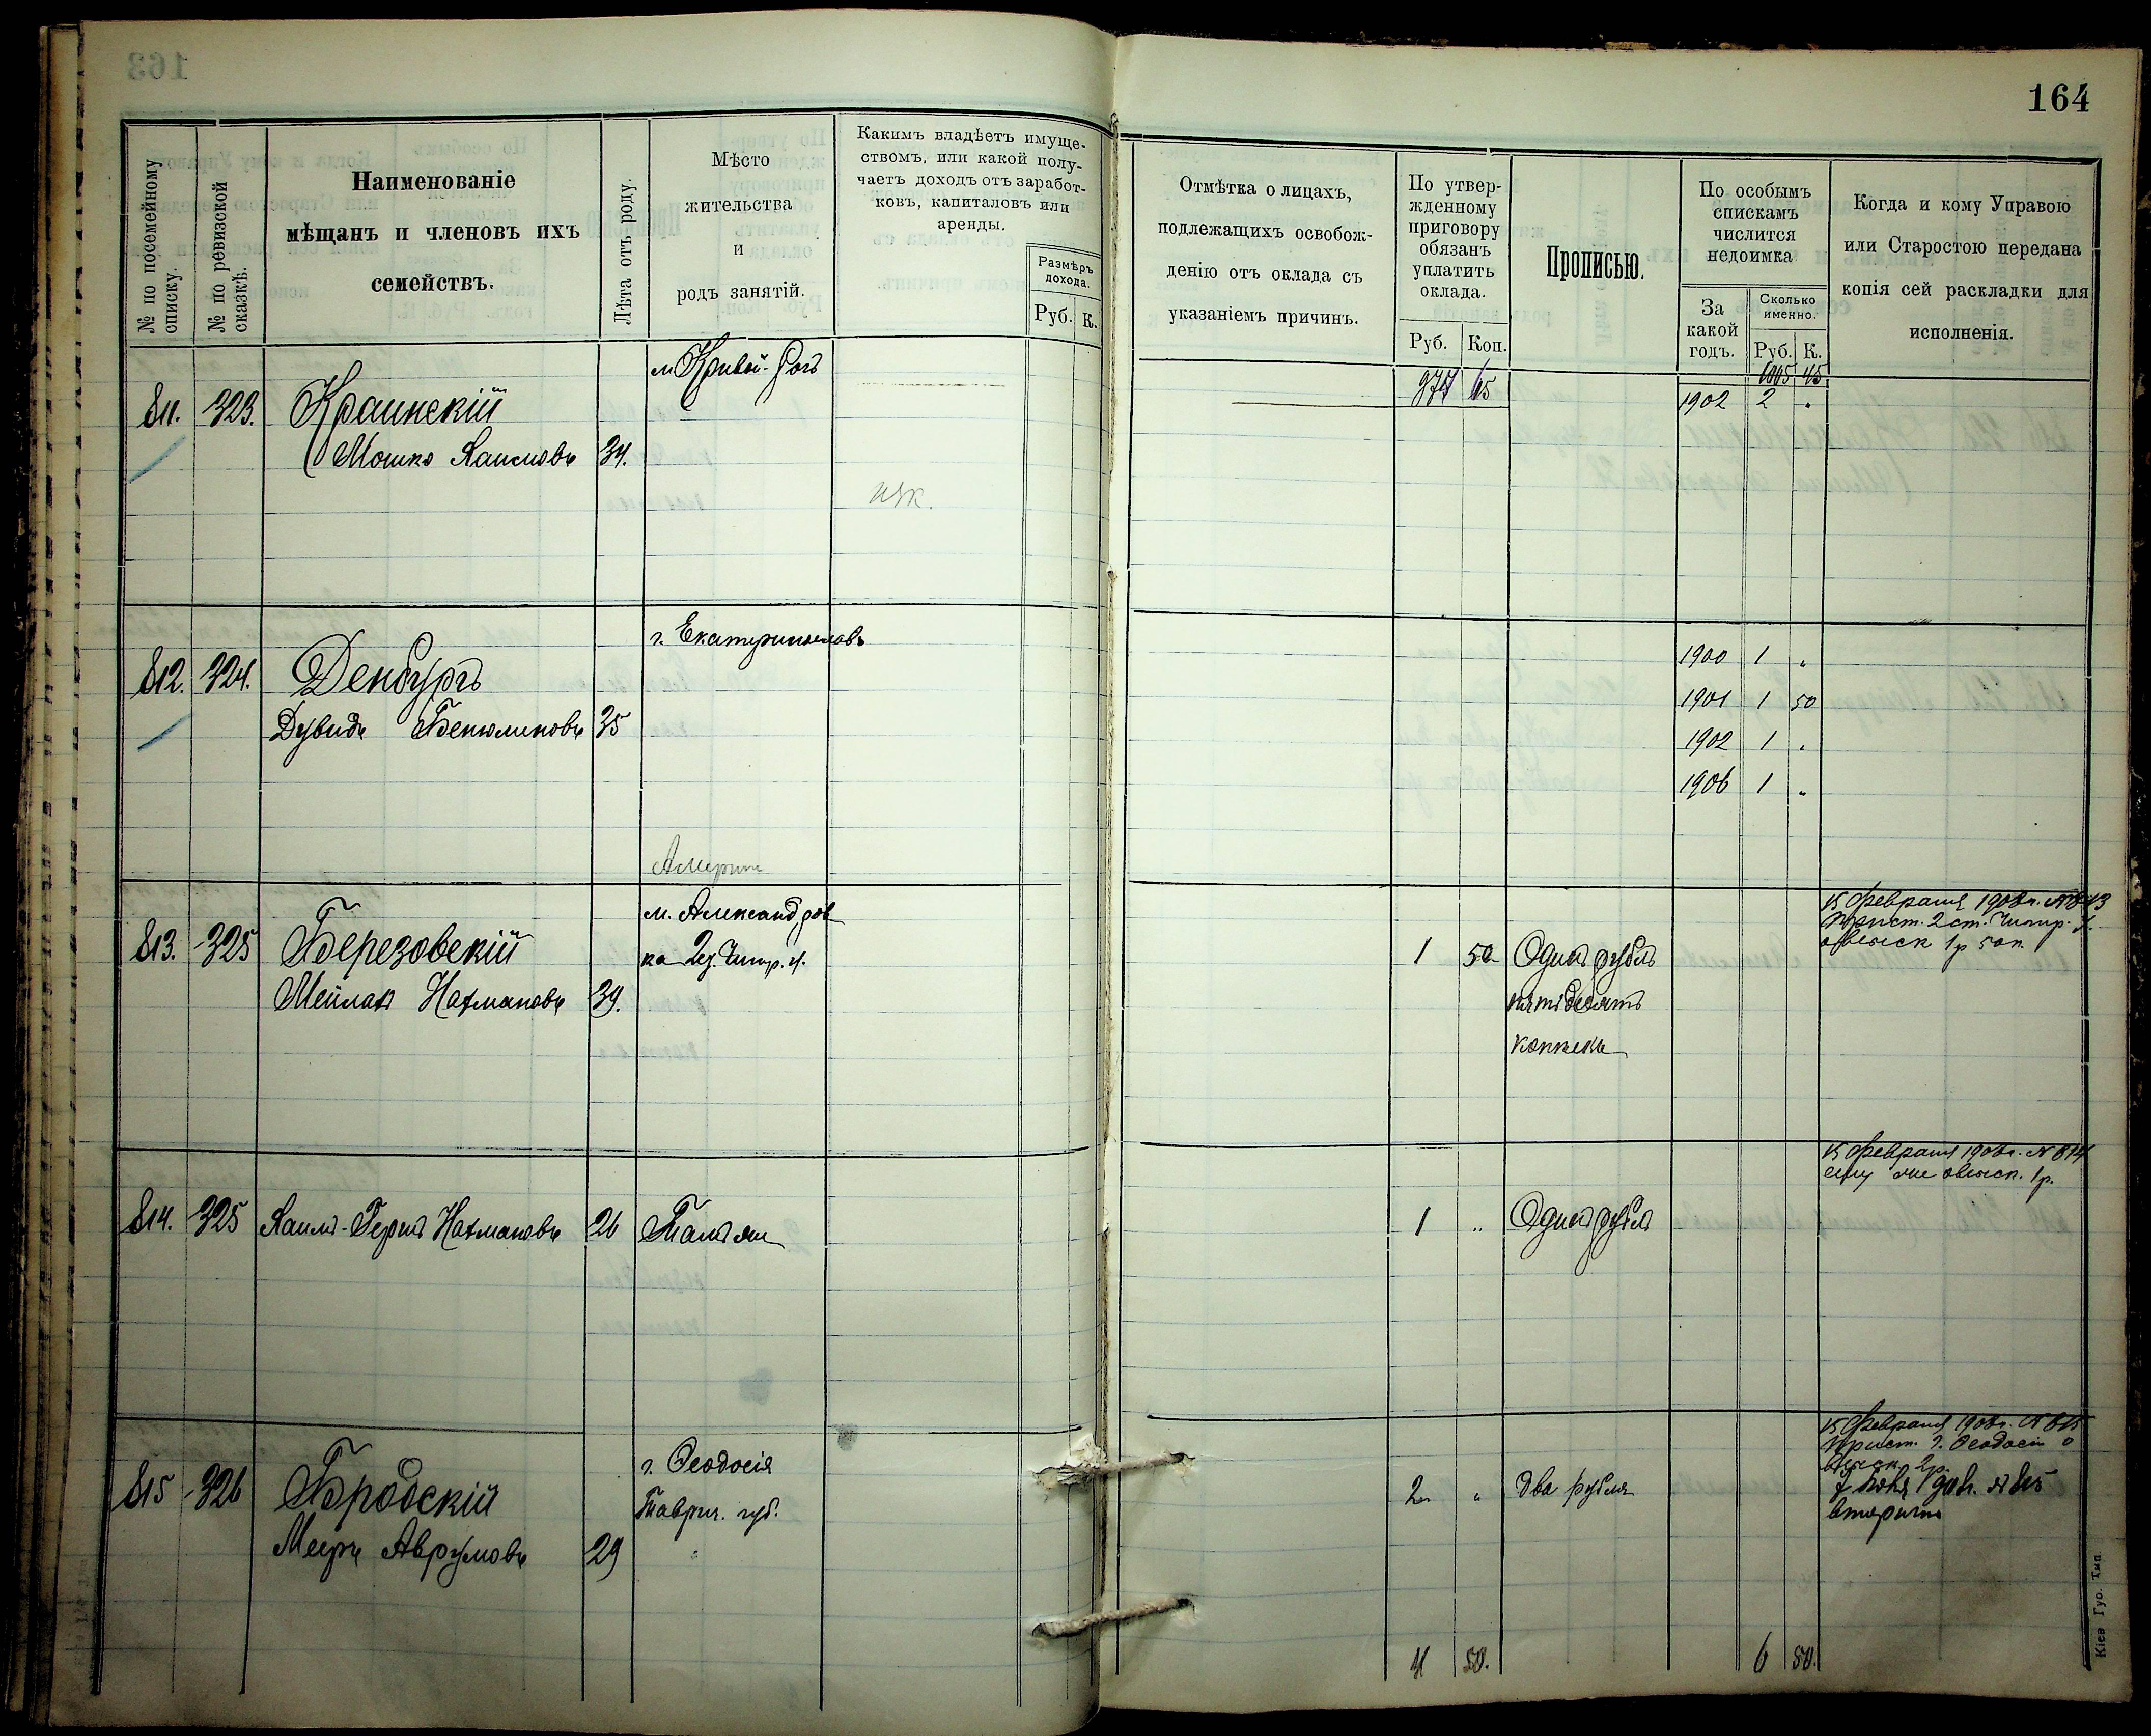 164
№ по посемейному
списку.
№ по ревизской
сказкѣ.
Наименованіе
мѣщанъ и членовъ ихъ
семействъ.
Лѣта отъ роду.
Мѣсто
жительства
и
родъ занятій.
Какимъ владѣетъ имуще-
ствомъ, или какой полу-
чаетъ доходъ отъ заработ-
ковъ, капиталовъ или
аренды.
Размѣръ
дохода.
Руб. К.
Отмѣтка о лицахъ,
подлежащихъ освобож-
денію отъ оклада съ
указаніемъ причинъ.
По утвер-
жденному
приговору
обязанъ
уплатить
оклада.
Руб. Коп.
Прописью.
По особымъ
спискамъ
числится
недоимка
За
какой
годъ.
Сколько
именно.
Руб. К.
Когда и кому Управою
или Старостою передана
копія сей раскладки для
исполненія.
65
1005 45
м. Кривой-Рогъ
811. 323. Краинскій
1902 2 "
Мошко Хаимовъ 34.
г. Екатеринославъ
812. 324. Денбургъ
Дувидъ Бенюминовъ 35
1900 1 "
1901 1 50
1902 1 "
1906 1 "
м. Александров
ка 2 у. Чигир. у.
813. 325 Березовскій
Мейлахъ Нахмановъ 39.
1 50 Одинъ рубль
пятьдесятъ
копѣекъ
15 Февраля 1908 г. № 813
Прист. 2 ст. Чигир. у.
о взыск 1 р 50 к.
814. 325 Хаимъ-Гершъ Нахмановъ 26 Тамъ же
1 " Одинъ рубль
15 Февраля 1908 г. № 814
ему же о взыск. 1 р.
г. Ѳеодосія
Таврич. губ.
815 326 Бродскій
Мееръ Аврумовъ 29
2 " два рубля
15 Февраля 1908 г. № 815
Прист. г. Ѳеодосіи о
взыск 2 р.
№ 815
вторично
4 50.
6 50.
Кіев Губ. Тип.